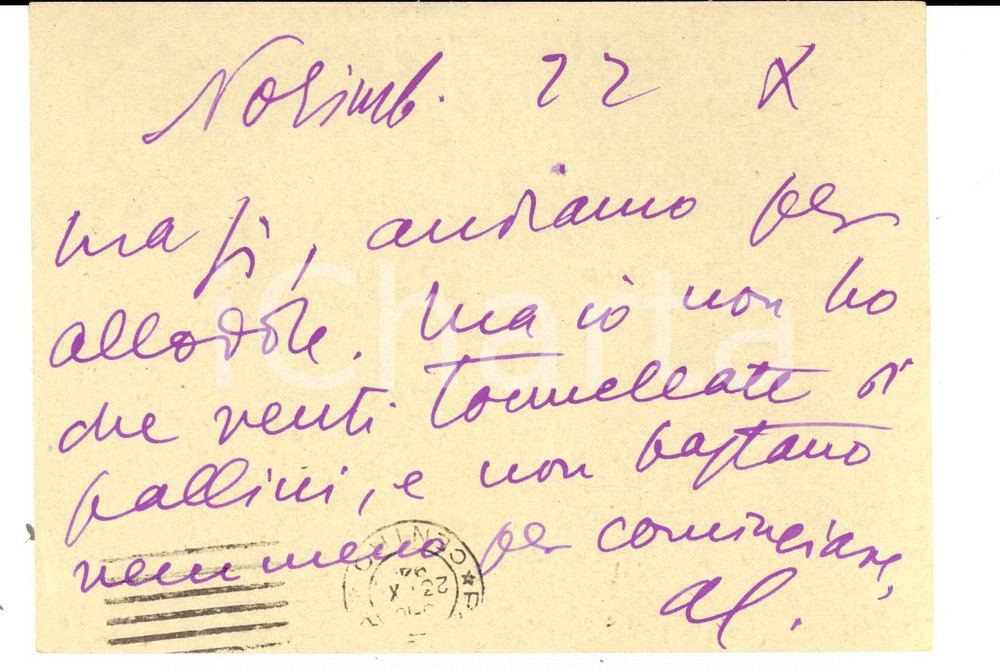 Norimb. 22 X
ma sì, andiamo per
allodole. Ma io non ho
che venti tonnellate di
pallini, e non bastano
nemmeno per cominciare,
Al.
iCharta
CENTRO